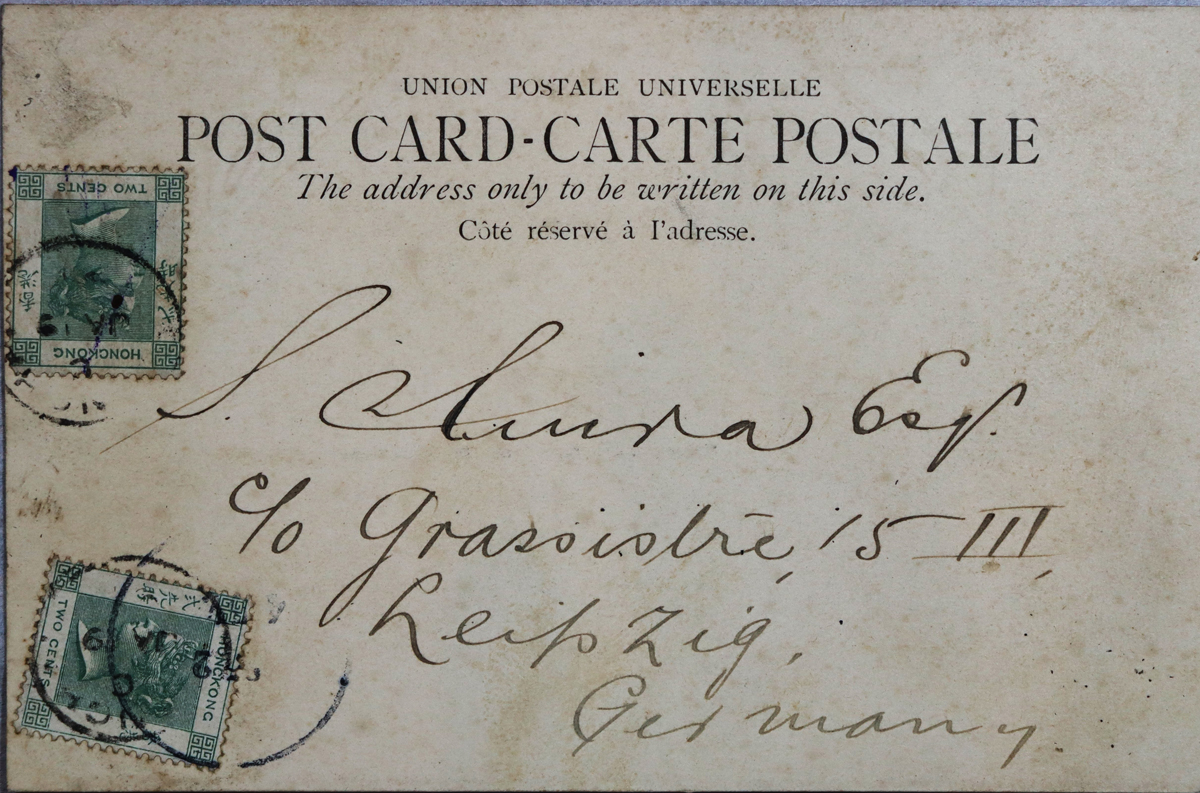 UNION POSTALE UNIVERSELLE
POST CARD-CARTE POSTALE
The address only to be written on this side.
Côté réservé à l'adresse.
TWO CENTS
HONGKONG
JA 19
S. Esq.
c/o Grassistre, 15 III,
Leipzig,
Germany.
TWO CENTS
HONGKONG
JA 19